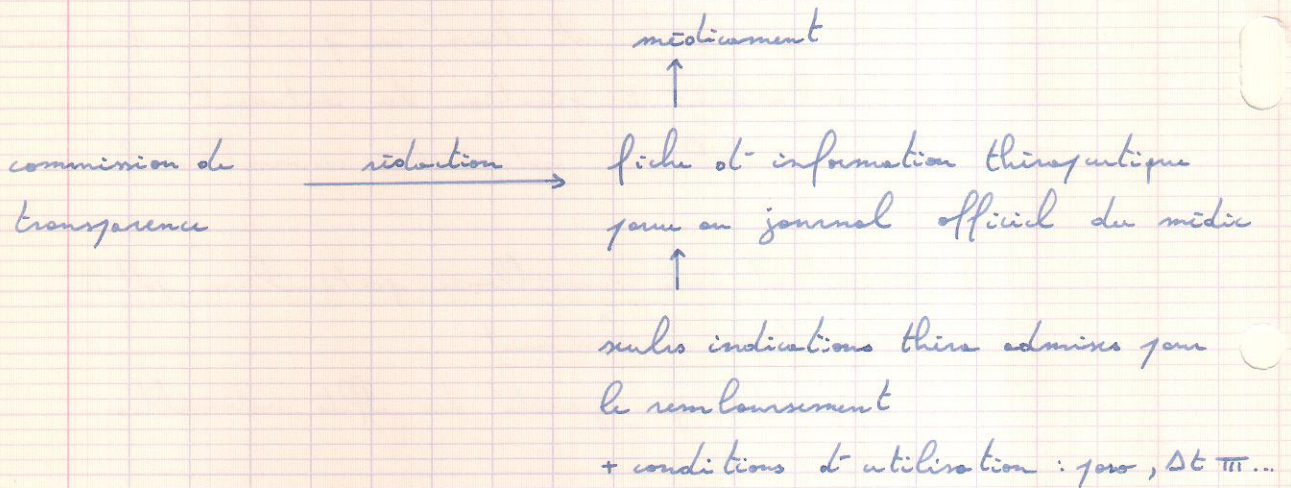 médicament
commission de
transparence
rédaction
fiche d'information thérapeutique
parue au journal officiel du médic
seules indications théra admises pour
le remboursement
+ conditions d'utilisation : poso, Δt TTT...